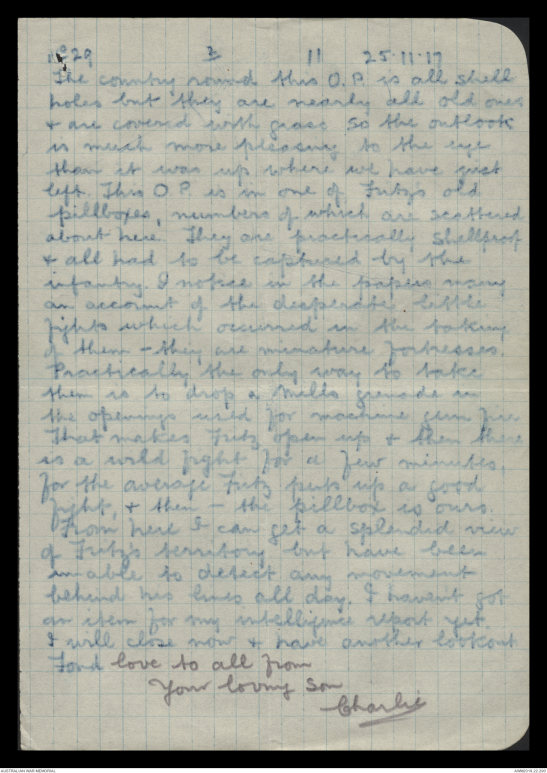 1929 3 11 25.11.17
The country round this O.P. is all shell
holes but they are nearly all old ones
& are covered with grass so the outlook
is much more pleasing to the eye
than it was up where we have just
left. This O.P. is in one of Fritz's old
pillboxes, numbers of which are scattered
about here. They are practically shellproof
& all had to be captured by the
infantry. I notice in the papers many
an account of the desperate little
fights which occurred in the taking
of them - they are minature fortresses.
Practically the only way to take
them is to drop a Mills grenade in
the openings used for machine gun fire
That makes Fritz open up & then there
is a wild fight for a few minutes,
for the average Fritz puts up a good
fight, & then - the pillbox is ours.
From here I can get a splendid view
of Fritz's territory but have been
unable to detect any movement
behind his lines all day. I haven't got
an item for my intelligence report yet.
I will close now & have another lookout
Fond love to all from
Your loving son
Charlie
AUSTRALIAN WAR MEMORIAL